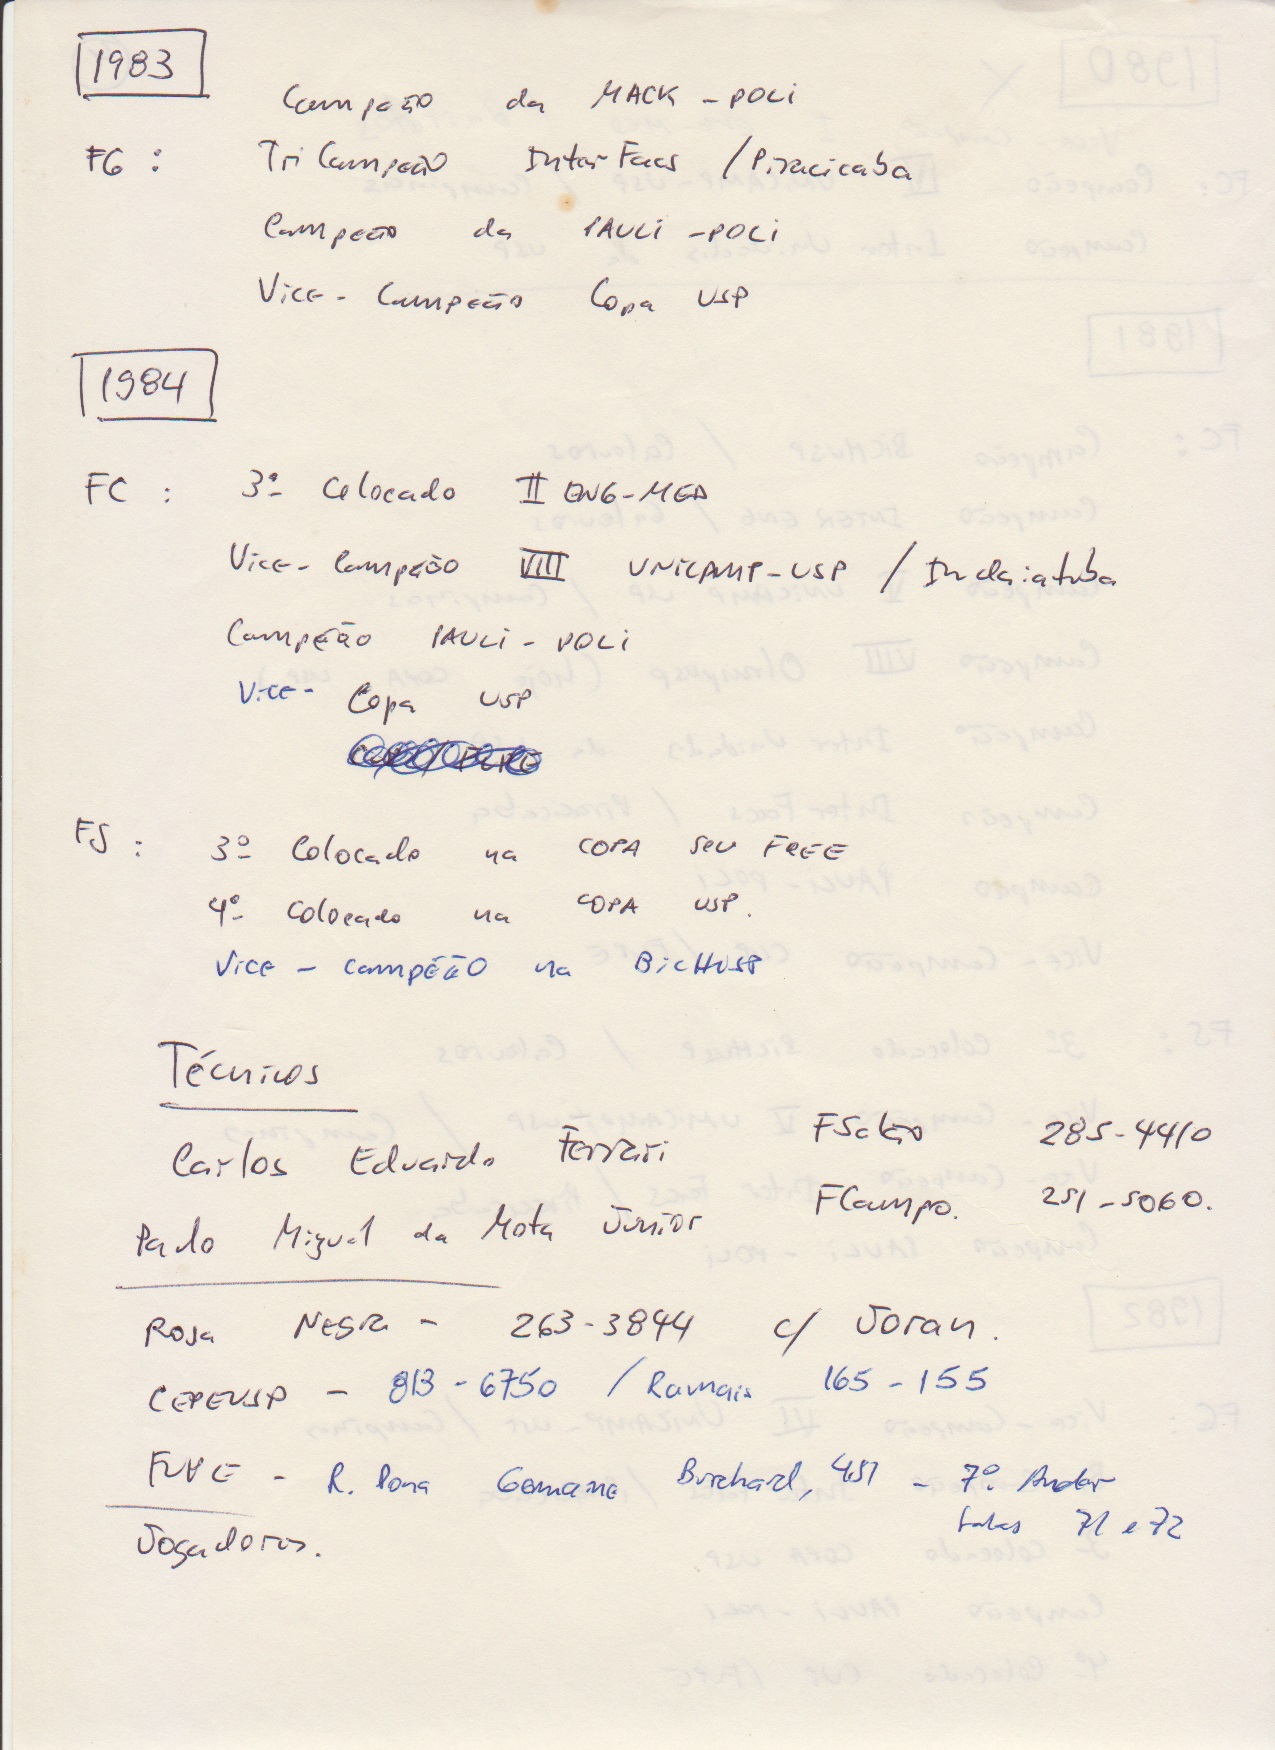 1983
Campeão da MACK-POLI
FG : TriCampeão InterFacs / Piracicaba
Campeão da PAULI-POLI
Vice-Campeão Copa USP
1984
FC : 3º Colocado II ENG-MED
Vice-Campeão VIII UNICAMP-USP / Indaiatuba
Campeão PAULI-POLI
Vice- Copa USP
FS : 3º Colocado na COPA SEU FREE
4º Colocado na COPA USP.
Vice-campeão na BICHUSP
Técnicos
Carlos Eduardo Ferrari FSalão 285-4410
Paulo Miguel da Mota Junior FCampo. 251-5060.
Rosa Negra - 263-3844 c/ Joran.
CEPEUSP - 813-6750 / Ramais 165-155
FUPE - R. Dona Germaine Burchard, 451 - 7º. Andar
Salas 71 e 72
Jogadores.